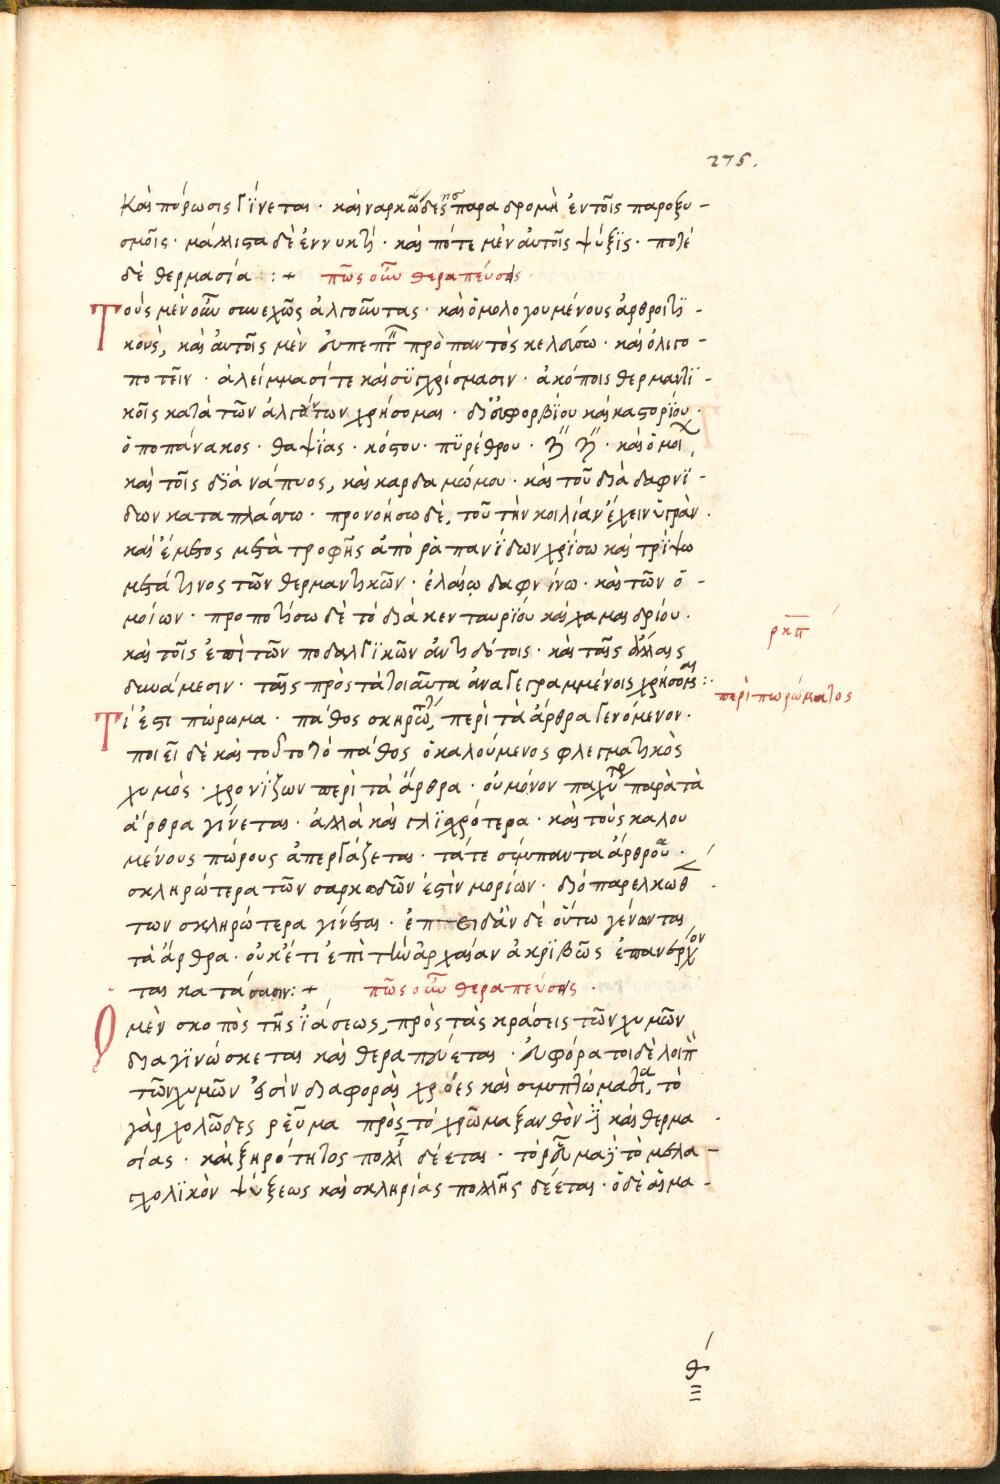 275.
καὶ πύρωσις γίνεται · καὶ ναρκώδης παραδρομὴ ἐν τοῖς παροξυ-
σμοῖς · μάλιστα δὲ ἐν νυκτί · καὶ πότε μὲν αὐτοῖς ψύξϊς · ποτέ
δὲ θερμασία :+ πῶς οὖν θεραπεύσεις
Τοὺς μὲν οὖν συνεχῶς ἀλγοῦντας · καὶ ὁμολογουμένους ἀρθριτϊ-
κοὺς, καὶ αὐτοῖς μὲν πρὸ παντὸς κελεύσω · καὶ ὀλιγο-
ποτεῖν · ἀλείμμασί τε καὶ συγχρίσμασιν · ἀκόποις θερμαντϊ-
κοῖς κατὰ τῶν ἀλγούντων χρήσομαι · δι' εὐφορβίου καὶ καστορίου ·
ὀποπάνακος · θαψίας · κόστου · πυρέθρου · καὶ ὁμοι
καὶ τοῖς διὰ νάπυος, καὶ καρδαμώμου · καὶ τοῦ διὰ δαφνί-
δων καταπλάσσω · προνοήσω δὲ, τοῦ τὴν κοιλίαν ἔχειν ὑγρὰν ·
καὶ ἔμετος μετὰ τροφῆς ἀπὸ ῥαπανίδων χρίσω καὶ τρίψω
μετά τινος τῶν θερμαντικῶν · ἐλαίῳ δαφνίνω · καὶ τῶν ὁ-
μοίων · προποτίσω δὲ τὸ διὰ κενταυρίου καὶ χαμαιδρίου ·
καὶ τοῖς ἐπὶ τῶν ποδαλγϊκῶν ἀντιδότοις · καὶ ταῖς ἄλλαις
δυνάμεσιν · ταῖς πρὸς τὰ τοιαῦτα ἀναγεγραμμένοις χρήσομαι :·
ρκπ
περὶ πωρώματος
Τί ἐστι πώρωμα · πάθος σκηρῶ, περὶ τὰ ἄρθρα γενόμενον ·
ποιεῖ δὲ καὶ τοῦτο τὸ πάθος ὁ καλούμενος φλεγματικὸς
χυμός · χρονίζων περὶ τὰ ἄρθρα · οὐ μόνον παχύτερ παρὰ τὰ
ἄρθρα γίνεται · ἀλλὰ καὶ γλϊσχρότερα · καὶ τοὺς καλου
μένους πώρους ἀπεργάζεται · τά τε σύμπαντα ἄρθρου ·
σκληρώτερα τῶν σαρκωδῶν ἐστὶν μορίων · διὸ παρελκωθ
των σκληρώτερα γίνεται · ἐπειδὰν δὲ οὕτω γένωνται
τὰ ἄρθρα · οὐκέτι ἐπὶ τὴν ἀρχαίαν ἀκριβῶς ἐπανέρχον
ται κατάστασιν :+ πῶς οὖν θεραπεύσεις ·
Ὁ μὲν σκοπὸς τῆς ἰάσεως, πρὸς τὰς κράσεις τῶν χυμῶν
διαγϊνώσκεται καὶ θεραπεύεται · διάφορά τοι δὲ λοιπ
τῶν χυμῶν εἰσὶν διαφοραὶ χρόες καὶ συμπτώματα, τὸ
γὰρ χολῶδες ῥεῦμα πρὸς τὸ χρῶμα ξανθὸν ἢ καὶ θερμα
σίας · καὶ ξηρότητος πολλ δέεται · τὸ ῥεῦμα τὸ μελα-
γχολϊκὸν ψύξεως καὶ σκληρίας πολλῆς δέεται · ὁ δὲ αἱμα-
θ